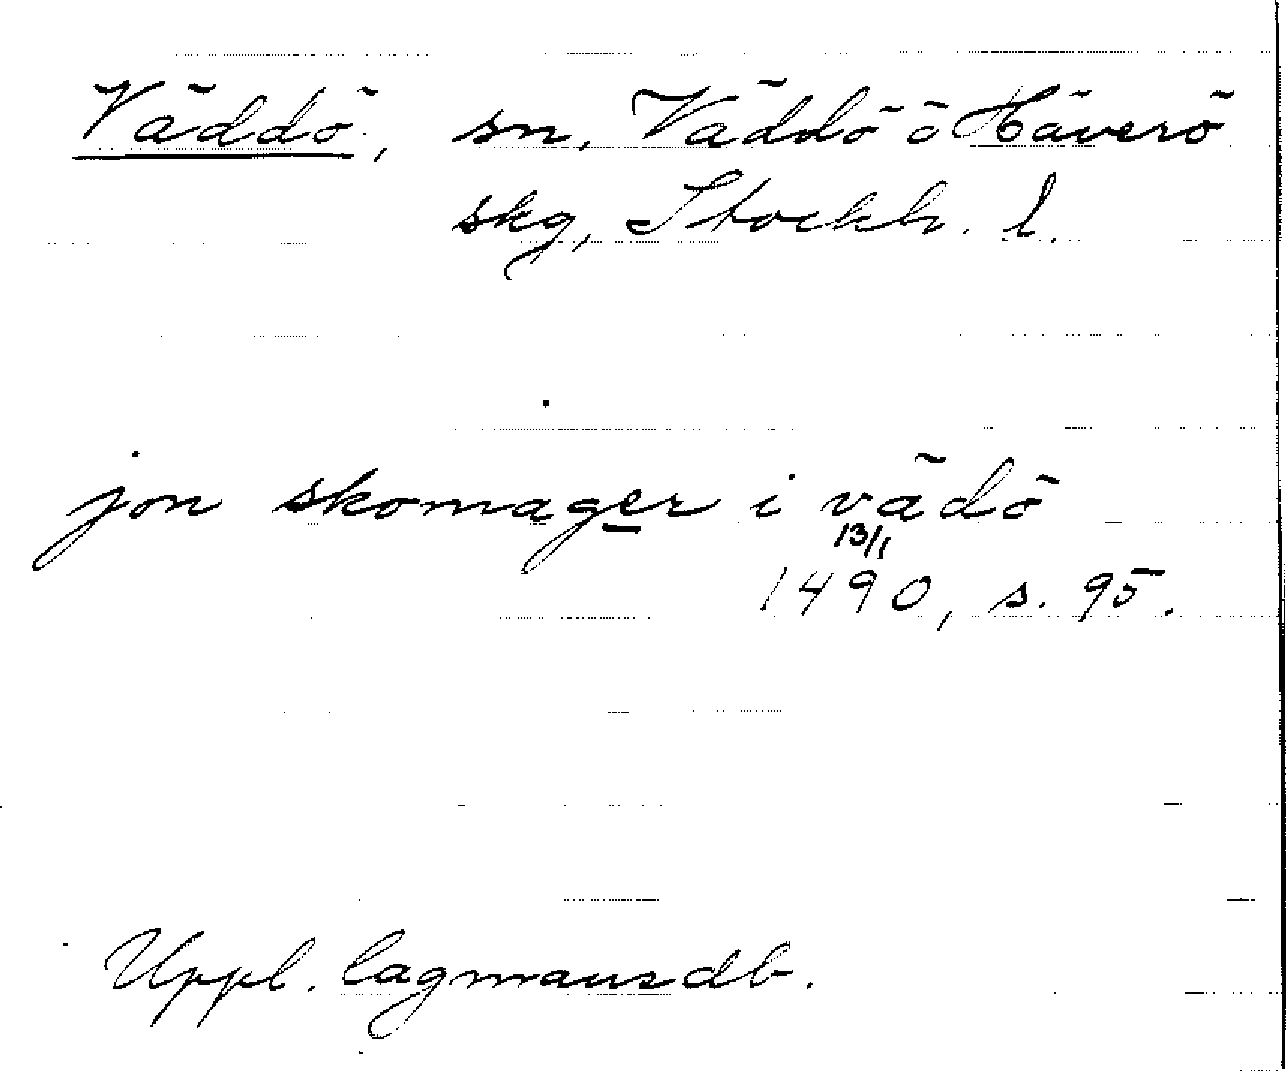 Väddö, sn, Väddö o Häverö
skg, Stockh. l.
jon skomager i vädö
13/1
1490, s. 95.
Uppl. lagmansdb.